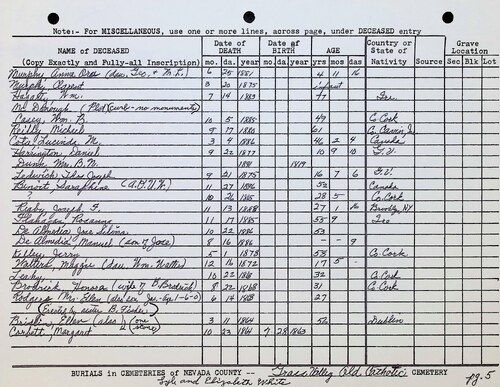 Note:- For MISCELLANEOUS, use one or more lines, across page, under DECEASED entry
NAME of DECEASED (Copy Exactly and Fully-all Inscription) Date of DEATH mo. da. year Date of BIRTH mo. da. year AGE yrs mos das Country or State of Nativity Source Grave Location Sec Blk Lot
Murphy, Anna (dau, Geo, & M.L.) 6 25 1881 4 11 16
Murphy, 3 20 1875 infant
Wm. 7 14 1883 47 Ire
Mc Donough (Plot/Curb-no monuments)
Casey, Wm. R. 10 5 1885 49 Co Cork
Reilly, Michael 9 17 1880 61
Cota, Lucinda M. 3 4 1886 46 2 4 Canada
Harrington, Daniel 9 22 1877 10 9 10
Dunn, Wm. B. N. 1881 1819
Joseph 9 21 1875 16 7 6
Benoit, Saraphine 11 27 1886 52 Canada
? 10 26 1885 28 5 Co. Cork
Joseph F. 11 13 1888 27 1 16 Brooklyn, NY
Flanagan, Rosanna 11 17 1885 55 9 Ire
De Almedia Jose Silva 10 22 1886 53
De Almedia, Manuel (son of Jose) 8 16 1886 - - 9
Kelley, Jerry 5 1 1873 58 Co Cork
Maggie (dau, Wm. ) 12 16 1872 17 5 -
Leahy, 10 22 1868 32 Co. Cork
Broderick, Honora (wife of P. Broderick) 8 22 1868 31 Co Cork
Rodgers, Mrs Ellen (also son 1-6-0) 6 14 1868 27
(Erected by sister B. )
Ellen (also ) (one stone) 3 11 1864 56 Dublin
Corbett, Margaret 10 23 1864 7 28 1863
BURIALS in CEMETERIES of NEVADA COUNTY -- Grass Valley Old Catholic CEMETERY
Lyle and Elizabeth White pg. 5